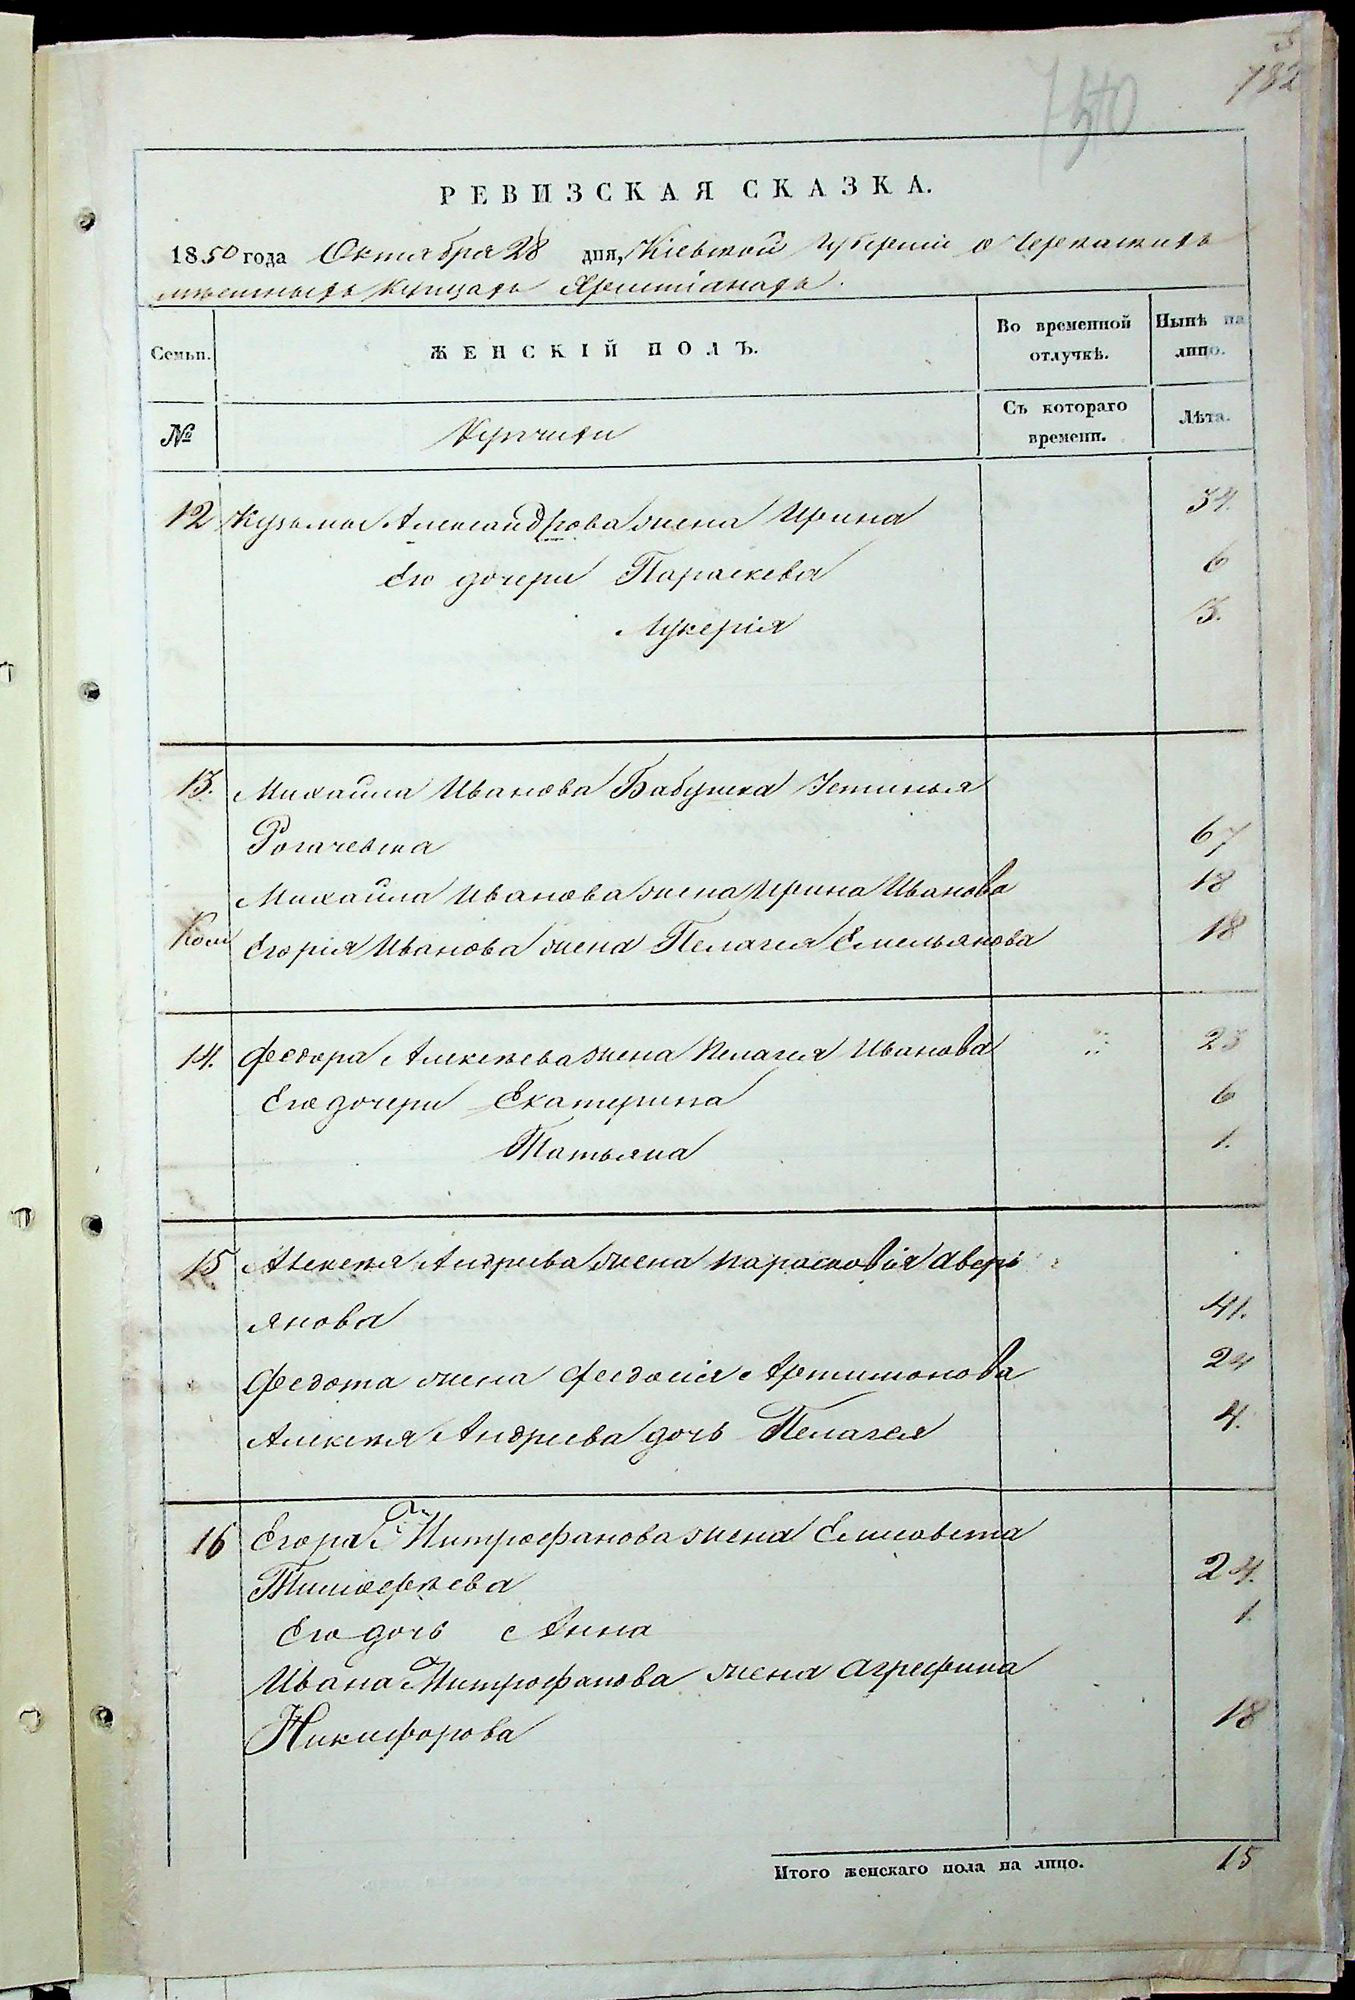 5
782
740
РЕВИЗСКАЯ СКАЗКА.
1850 года Октября 28 дня, Кіевской Губерніи о Черкаскихъ
мѣстныхъ купцахъ Христіанахъ.
Семьи.
ЖЕНСКІЙ ПОЛЪ.
Во временной отлучкѣ.
Нынѣ на лицо.
№
Купчихи
Съ котораго времени.
Лѣта.
12 Кузьмы Александрова жена Ирина 34.
Его дочери Параскева 6
Лукерія 3.
13. Михайла Иванова Бабушка Устинья
Рогачевска 67
Михайла Иванова жена Ирина Иванова 18
Егорія Иванова жена Пелагея Емельянова 18
14. Федора Алексѣева жена Пелагея Иванова 23
Его дочери Екатерина 6
Татьяна 1.
15 Алексѣя Андреева жена Парасковія Аверь
янова 41.
Федота жена Федосія Артимонова 24
Алексѣя Андреева дочь Пелагея 4.
16 Егора Митрофанова жена Елисовета
Тимофѣева 24.
Его дочь Анна 1.
Ивана Митрофанова жена Агрефина
Никифорова 18
Итого женскаго пола на лицо. 15